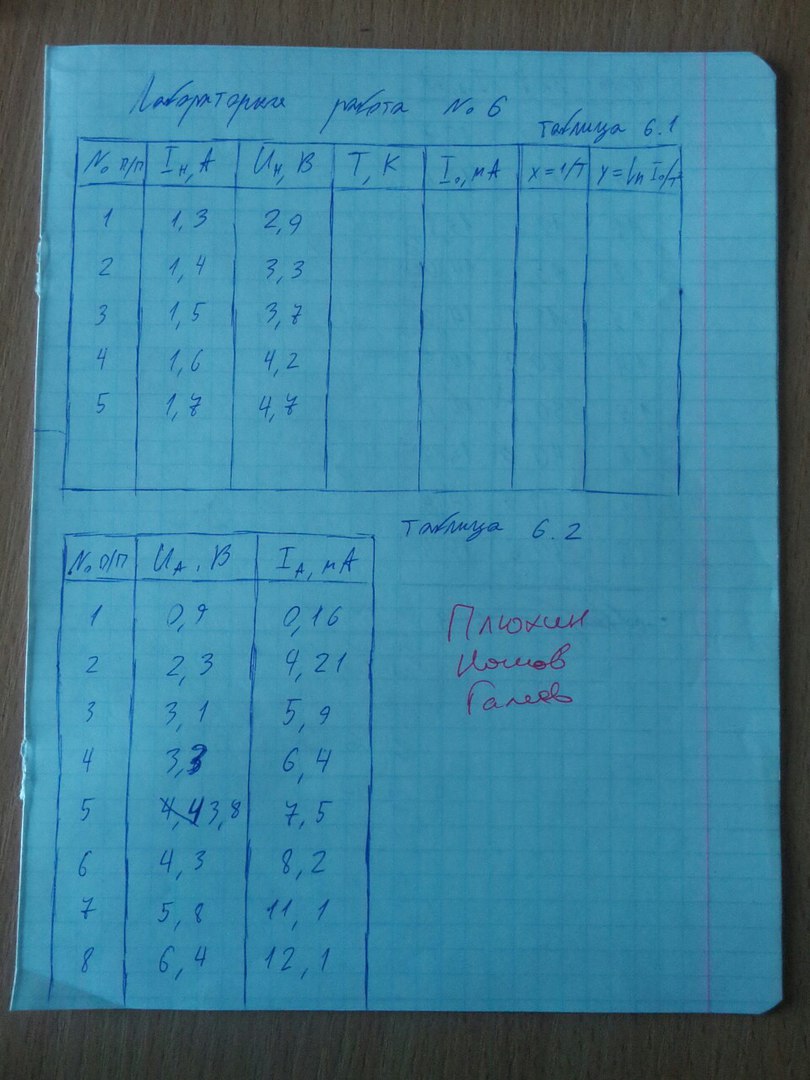 Лабораторная работа № 6
таблица 6.1
№ п/п Iн, А Uн, В T, К I₀, мА x = 1/T y = ln I₀/T
1 1,3 2,9
2 1,4 3,3
3 1,5 3,7
4 1,6 4,2
5 1,7 4,7
таблица 6.2
№ п/п UА, В IА, мА
1 0,9 0,16
2 2,3 4,21
3 3,1 5,9
4 3,3 6,4
5 4,4 3,8 7,5
6 4,3 8,2
7 5,8 11,1
8 6,4 12,1
Плюхин
Галеев